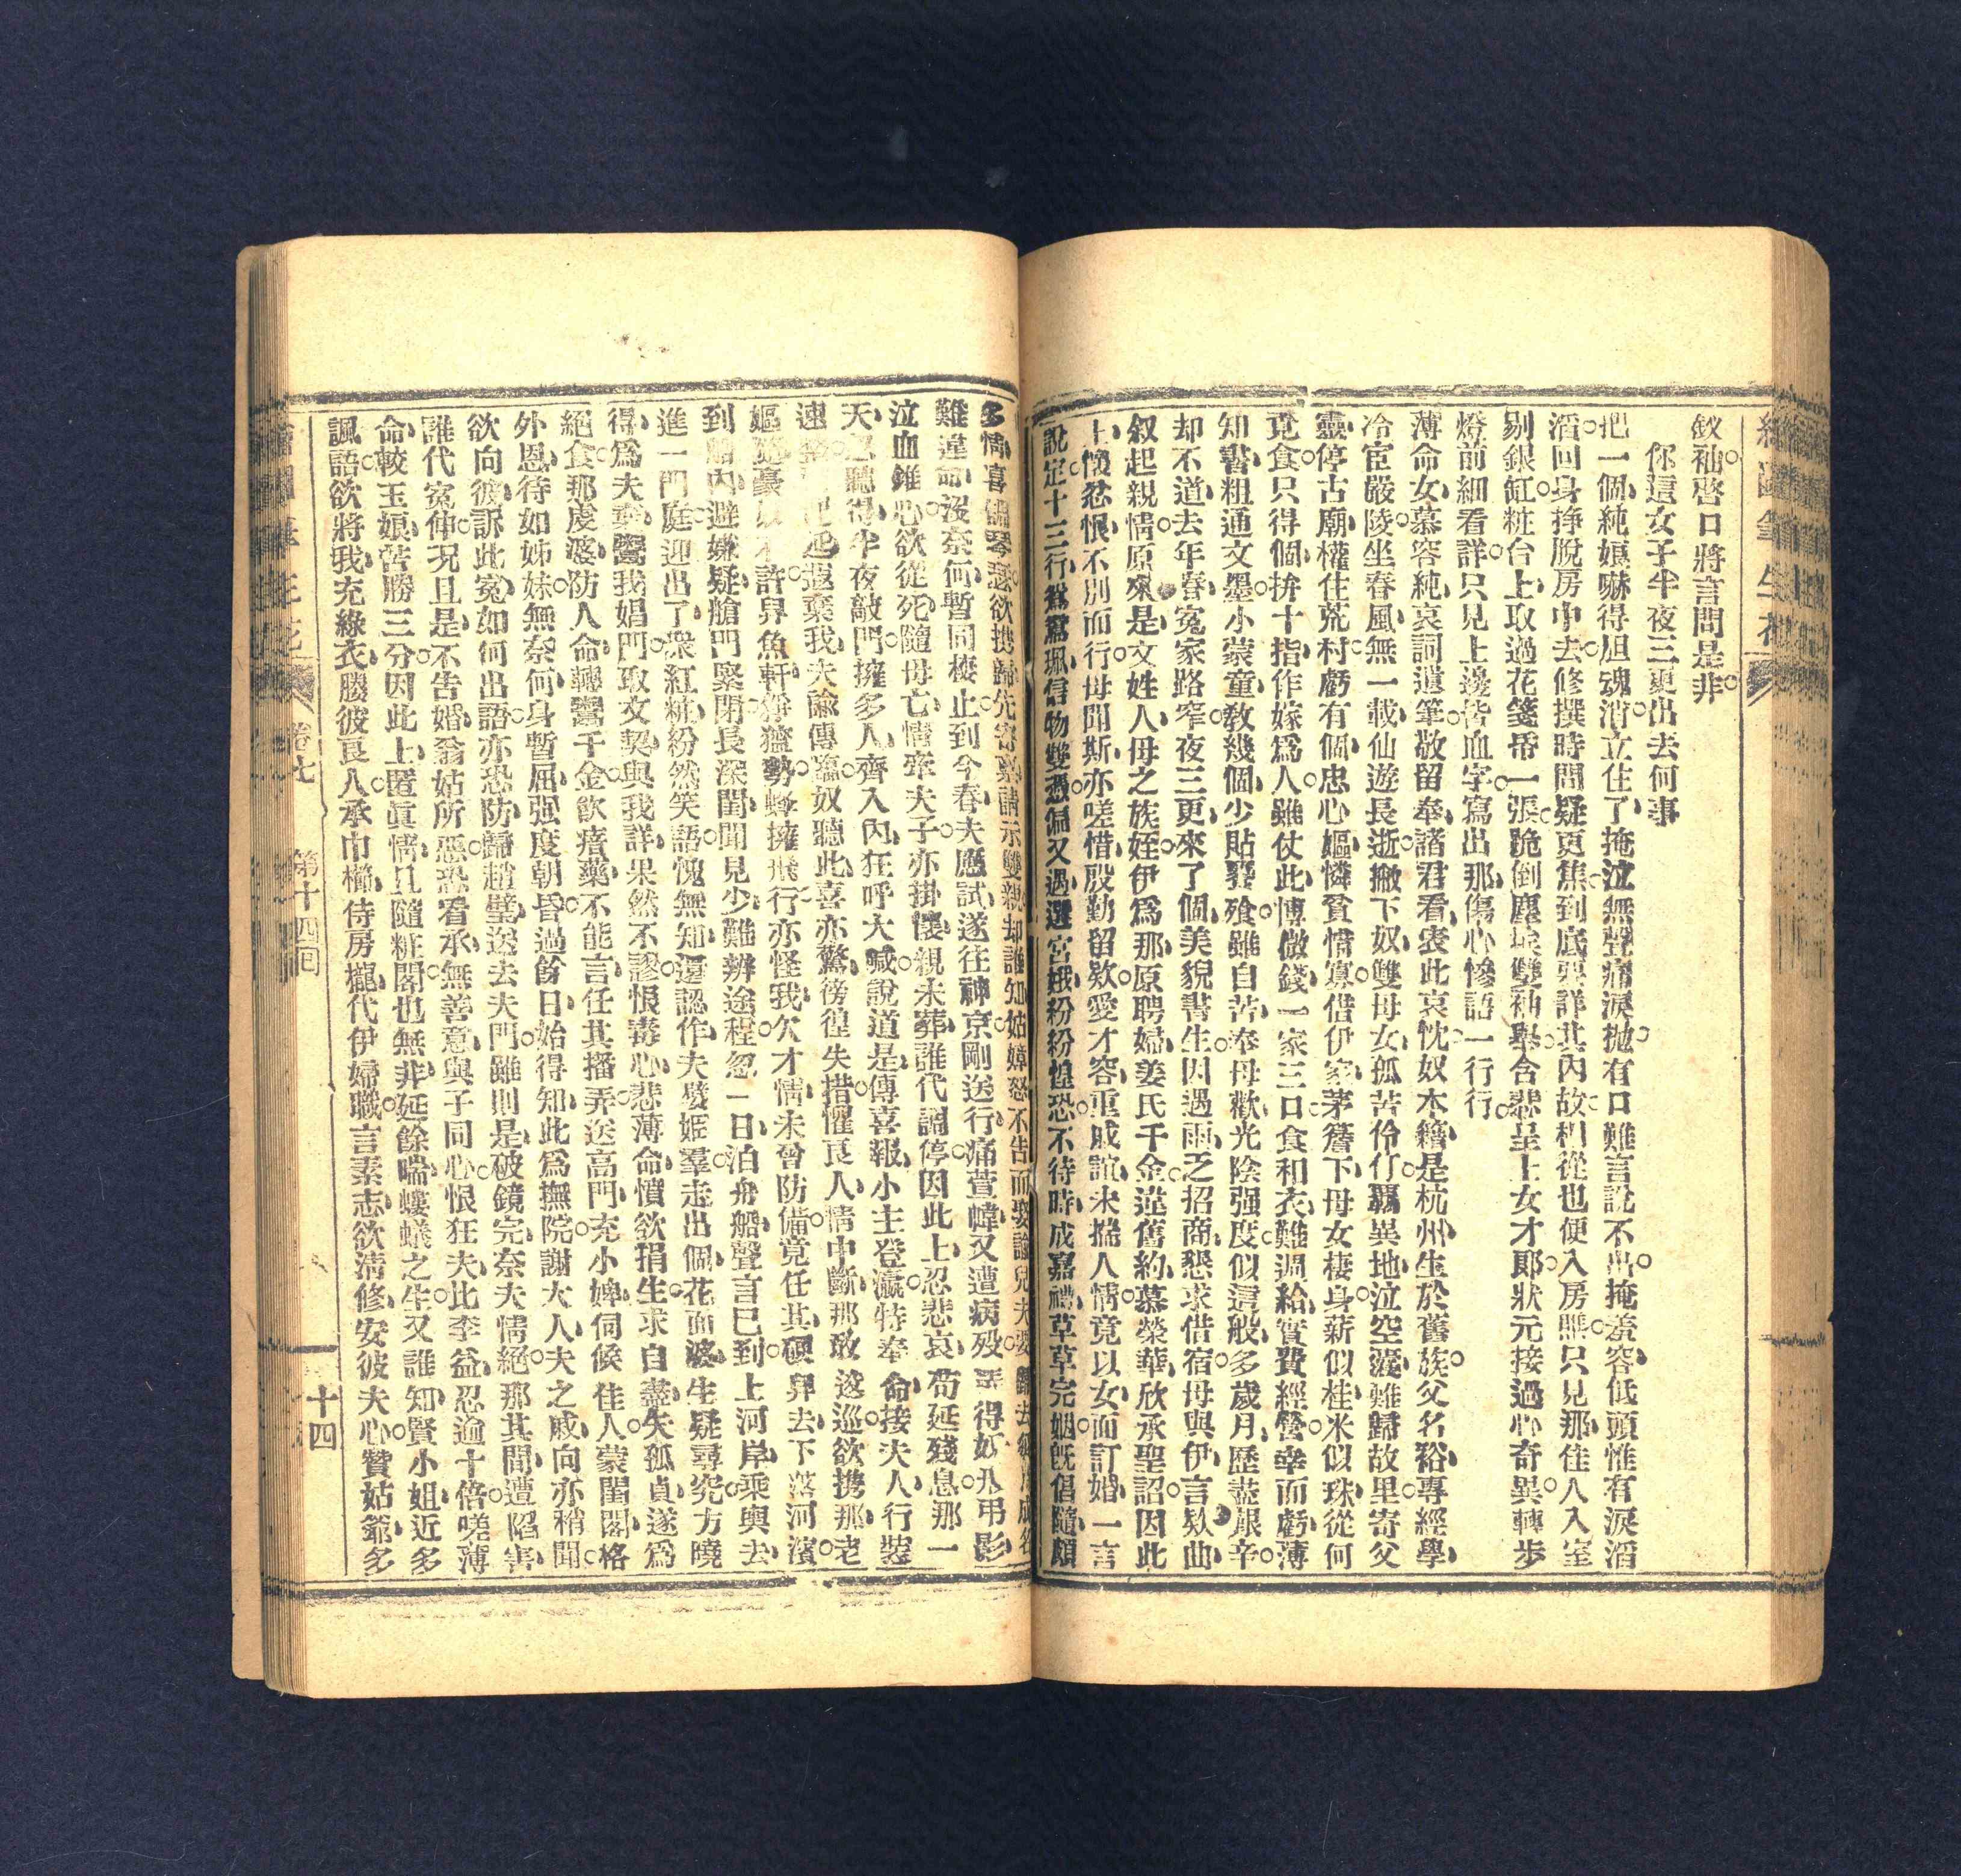 繪圖筆生花
斂袖啓口將言問是非
你這女子半夜三更出去何事
把一個純娘嚇得胆魂消立住了掩泣無聲痛淚抛有口難言說不出掩羞容低頭惟有淚滔
滔回身掙脫房中去修撰時間疑更焦到底要詳其內故相從也便入房熙只見那佳人入室
剔銀缸粧台上取過花箋帋一張跪倒塵埃雙袖舉含悲呈上女才郞狀元接過心奇異轉步
燈前細看詳只見上邊皆血字寫出那傷心慘語一行行
薄命女慕容純哀詞遺筆敬留奉諸君看表此哀忱奴本籍是杭州生於舊族父名裕專經學
冷宦嚴陵坐春風無一載仙遊長逝撇下奴雙母女孤苦伶仃羈異地泣空囊難歸故里寄父
靈停古廟權住荒村虧有個忠心嫗憐貧惜寡借伊家茅簷下母女棲身薪似桂米似珠從何
覓食只得個拚十指作嫁爲人雖仗此博微錢一家三口食和衣難週給實費經營幸而虧薄
知書粗通文墨小蒙童教幾個少貼饔飱雖自苦奉母歡光陰强度似這般多歲月歷盡艱辛
却不道去年春冤家路窄夜三更來了個美貌書生因遇雨乏招商懇求借宿母與伊言欵曲
叙起親情原來是文姓人母之族姪伊爲那原聘婦姜氏千金違舊約慕榮華欣承聖詔因此
上懷忿恨不別而行母聞斯亦嗟惜殷勤留欵愛才容重戚誼未揣人情竟以女而訂婚一言
說定十三行鴛鴦珮信物雙憑偏又遇選宮娥紛紛惶恐不待時成嘉禮草草完姻旣倡隨頗
多情喜調琴瑟欲携歸先寄稟請示雙親却誰知姑嫜怒不告而娶諭兒夫要
難違命沒奈何暫同棲止到今春夫應試遂往神京剛送行痛萱幃又遭病歿 得奴形弔影
泣血錐心欲從死隨母亡情牽夫子亦掛懷親未葬誰代調停因此上忍悲哀苟延殘息那一
天忽聽得半夜敲門擁多人齊入內狂呼大喊說道是傳喜報小主登瀛特奉命接夫人行裝
速 起遐棄我夫諭傳臨奴聽此喜亦驚徬徨失措懼良人情中斷那敢逡巡欲携那老
嫗 豪 不許畀魚軒猙獰勢蜂擁飛行亦怪我欠才情未曾防備竟任其硬舁去下落河濱
到船內避嫌疑艙門緊閉長深閨聞見少難辨途程忽一日泊舟船聲言已到上河岸乘輿去
進一門庭迎出了衆紅粧紛然笑語愧無知還認作夫嬖姬羣走出個花面婆生疑尋究方曉
得爲夫棄鬻我娼門取文契與我詳果然不謬恨毒心悲薄命憤欲捐生求自盡失孤貞遂爲
絕食那虔婆防人命轉鬻千金飲瘖藥不能言任其播弄送高門充小婢伺候佳人蒙閨閣格
外恩待如姊妹無奈何身暫屈强度朝昏過餘日始得知此爲撫院謝大人夫之戚向亦稍聞
欲向彼訴此冤如何出語亦恐防歸趙璧送去夫門雖則是破鏡完奈夫情絕那其間遭陷害
誰代冤伸况且是不告婚翁姑所惡恐看承無善意與子同心恨狂夫比李益忍逾十倍嗟薄
命較玉娘苦勝三分因此上匿眞情且隨粧閣也無非延餘喘螻蟻之生又誰知賢小姐近多
諷語欲將我充綠衣勝彼良人承巾櫛侍房櫳代伊婦職言素志欲淸修安彼夫心贊姑爺多
卷七 第十四回
十四